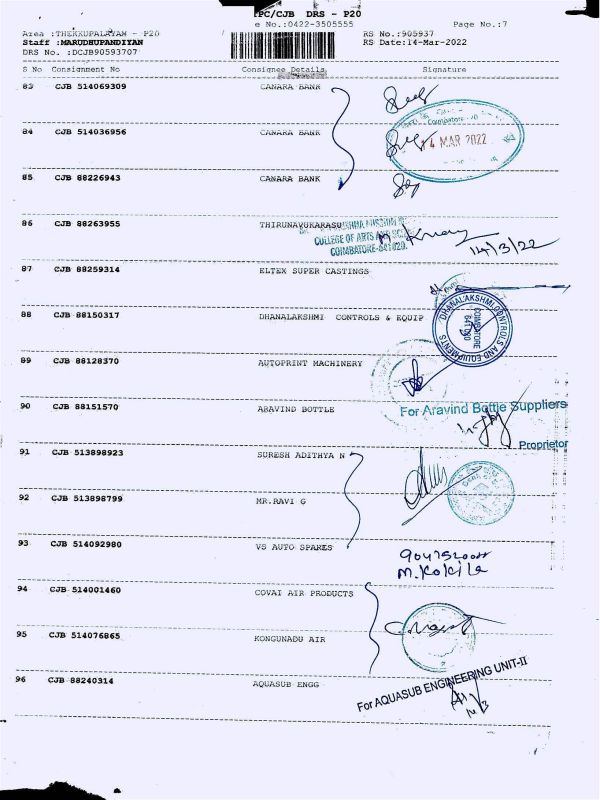 PC/CJB DRS - P20
e No.:0422-3505555 Page No.:7
Area :THEKKUPALAYAM - P20 RS No.:905937
Staff :MARUDHUPANDIYAN RS Date:14-Mar-2022
DRS No. :DCJB90593707
S No Consignment No Consignee Details Signature
83 CJB 514069309 CANARA BANK
84 CJB 514036956 CANARA BANK
Coimbatore
14 MAR 2022
85 CJB 88226943 CANARA BANK
86 CJB 88263955 THIRUNAVUKARASU
COLLEGE OF ARTS AND
COIMBATORE-641020.
14/3/22
87 CJB 88259314 ELTEX SUPER CASTINGS
88 CJB 88150317 DHANALAKSHMI CONTROLS & EQUIP
DHANALAKSHMI CONTROLS AND EQUIPMENTS
COIMBATORE
641020
89 CJB 88128370 AUTOPRINT MACHINERY
90 CJB 88151570 ARAVIND BOTTLE
For Aravind Bottle Suppliers
Proprietor
91 CJB 513898923 SURESH ADITHYA N
92 CJB 513898799 MR.RAVI G
93 CJB 514092980 VS AUTO SPARES
M.Kokila
94 CJB 514001460 COVAI AIR PRODUCTS
95 CJB 514076865 KONGUNADU AIR
96 CJB 88240314 AQUASUB ENGG
For AQUASUB ENGINEERING UNIT-II